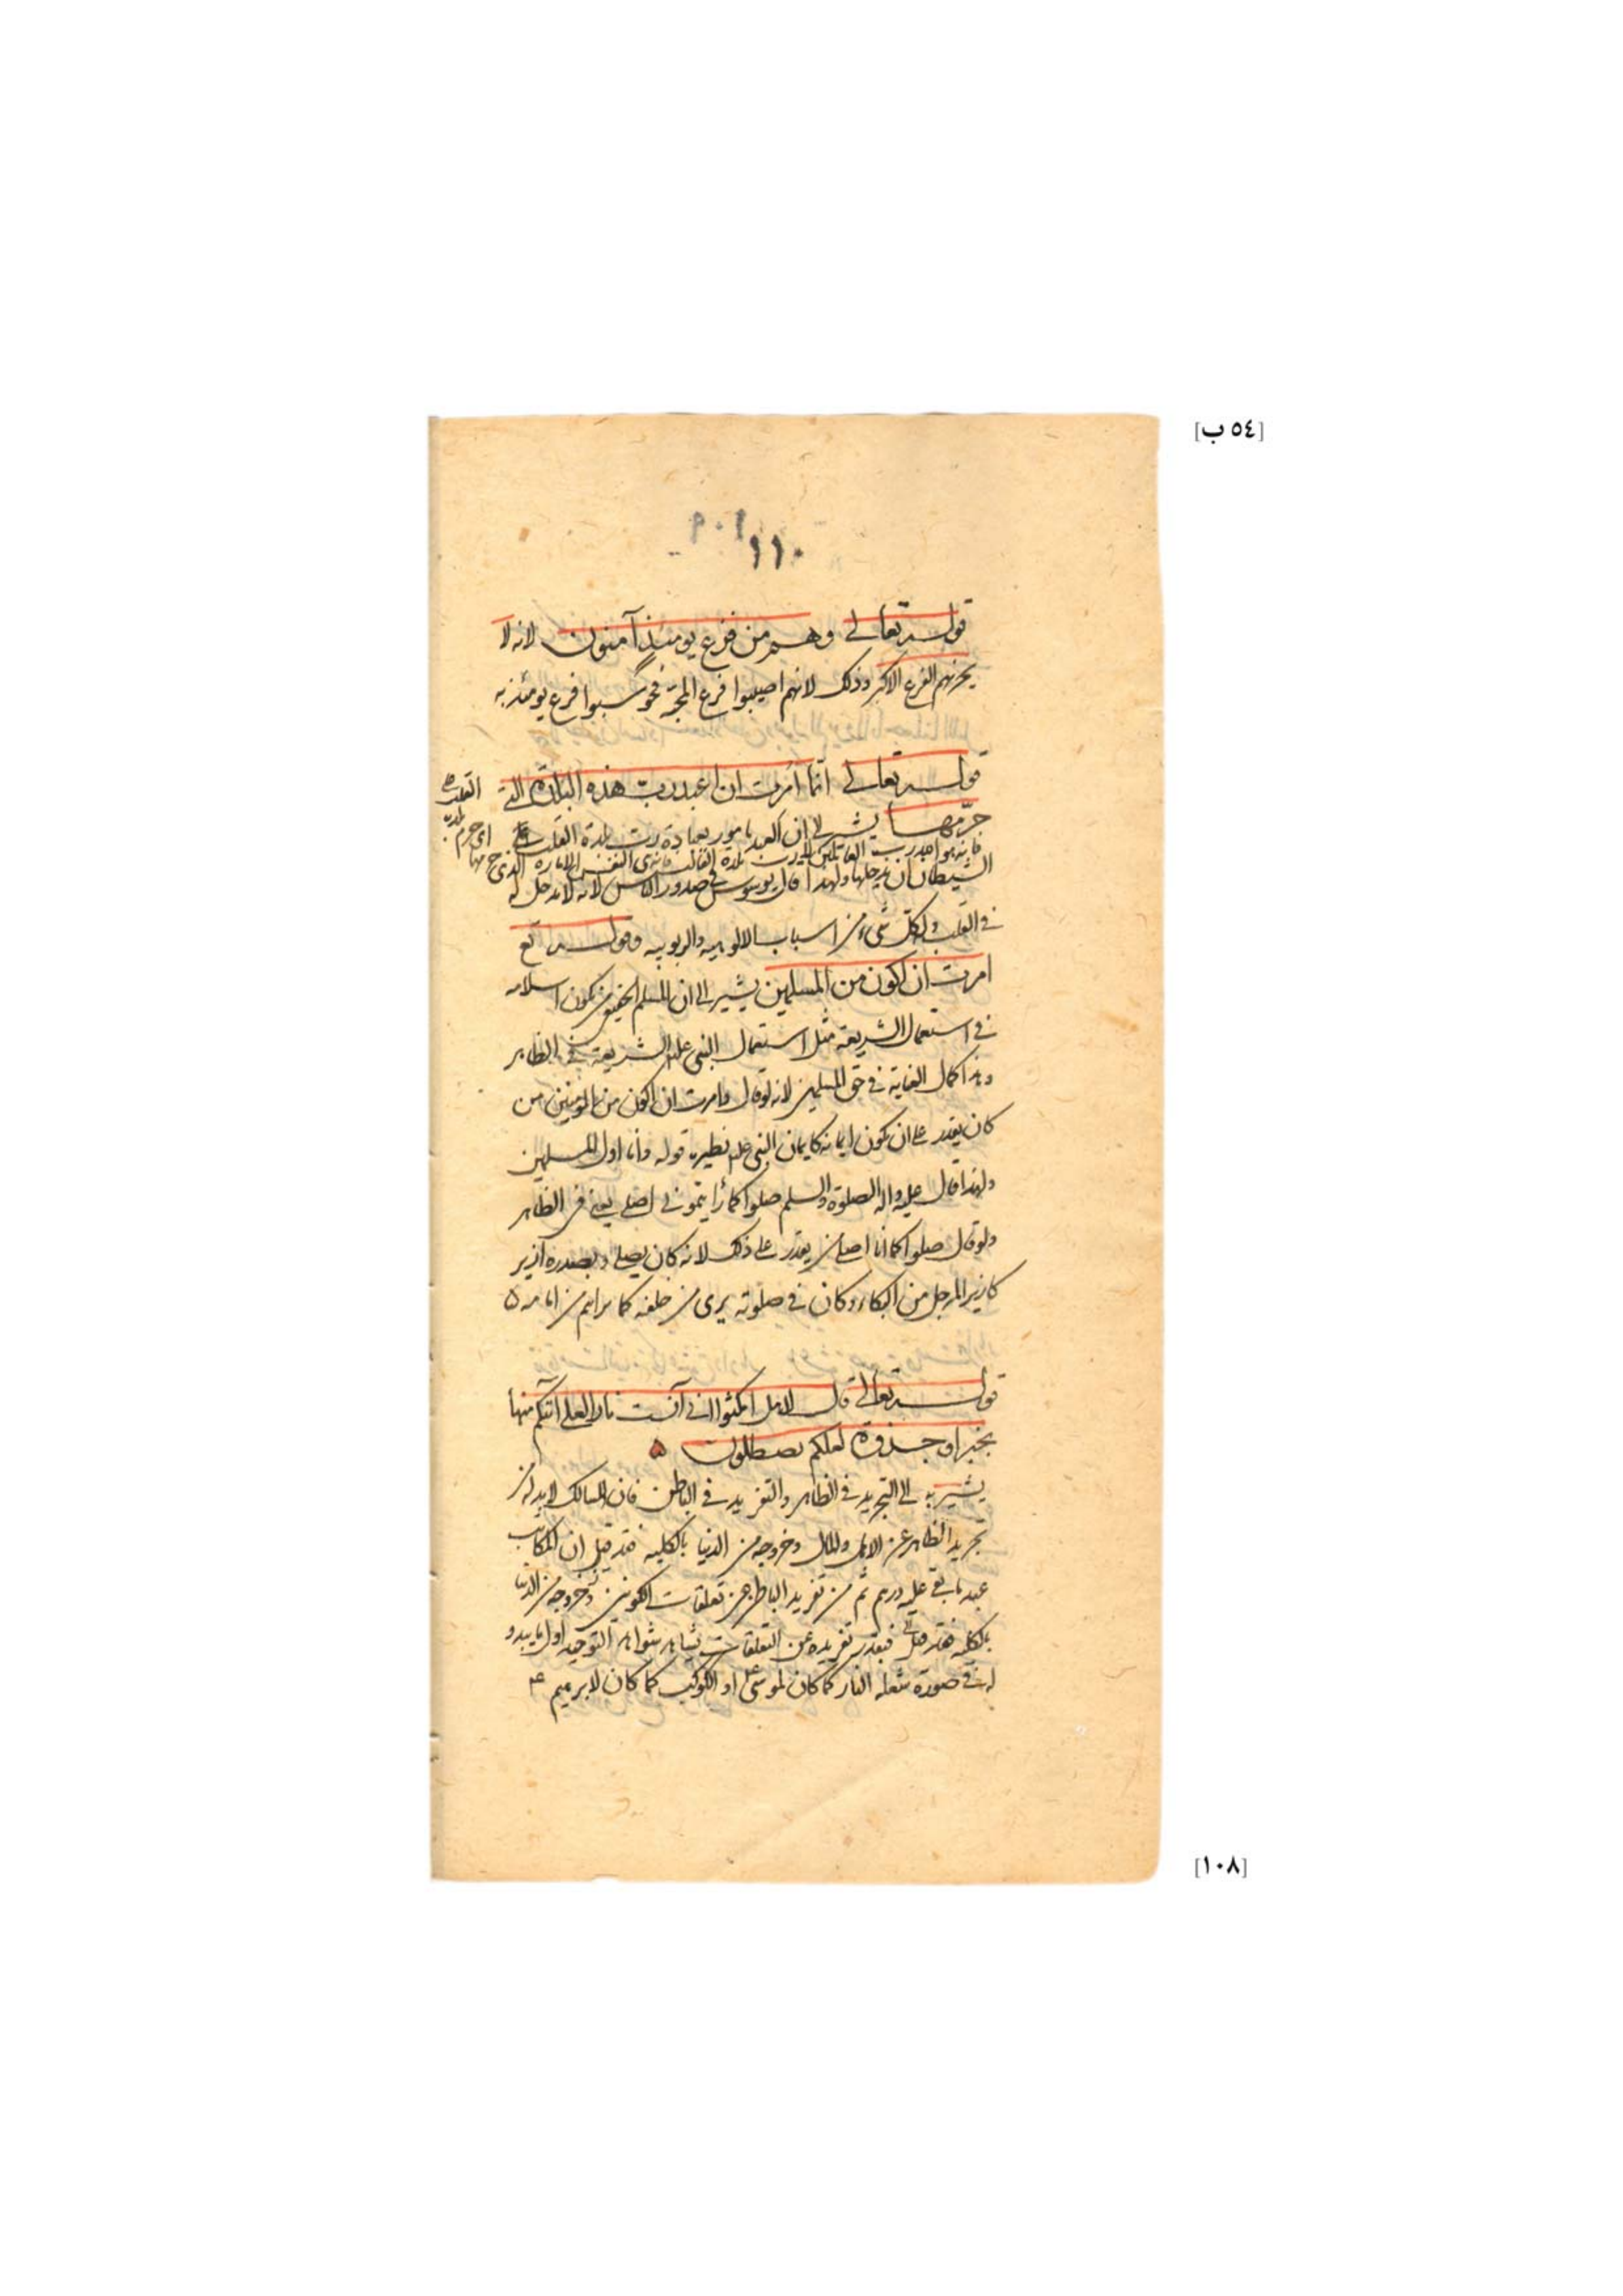 [٥٤ ب]
١٠٩
١١٠
قوله تعالى وهم من فزع يومئذ آمنون لانه لا
يحزنهم الفزع الاكبر وذلك لانهم اصيبوا فزع المحبة فحوسبوا فزع يومئذ به
قوله تعالى انما امرت ان اعبد رب هذه البلدة التي
حرّمها يشير الى ان العبد مامور بعبادة رب بلدة القلب
فانه هو اعبد رب العالمين بلدة القالب النفس الاماره الذي حرمها
الشيطان ان يدخلها ولهذا قال يوسوس في صدور الناس لانه لا مدخل له
في القلب وله كل شيء من اسباب الالوهية والربوبيه وقوله تع
امرت ان اكون من المسلمين يشير الى ان المسلم الحقيقي من يكون اسلامه
في استعمال الشريعة مثل استعمال النبي علم الشريعة في الظاهر
وهذا كمال العناية في حق المسلمين لانه لو قال وامرت ان اكون من المؤمنين من
كان يقدر على ان يكون ايمانه كايمان النبي علم نظيره قوله وانا اول المسلمين
ولهذا قال عليه واله الصلوة والسلم صلوا كما رايتموني اصلي يعني في الظاهر
ولو قال صلوا كما انا اصلي من يقدر على ذلك لانه كان يصلي وبصدره ازيز
كازيز المرجل من البكاء وكان في صلوته يرى من خلفه كما يراهم من امامه ٥
قوله تعالى قال لاهله امكثوا اني آنست نارا لعلي آتيكم منها
بخبر او جذوة لعلكم تصطلون ٥
يشير به الى التجريد في الظاهر والتفريد في الباطن فان السالك لابد له من
تجريد الظاهر عن الاهل والمال وخروجه من الدنيا بالكلية فقد قيل ان المكاتب
عبد ما بقي عليه درهم ثم من تفريد الباطن عن تعلقات الكونين وخروجه من الدنيا
بالكلية فبقدر تفريده عن التعلقات يشاهد شواهد التوحيد اول ما يبدو
له في صورة شعلة النار كما كان لموسى ع او الكوكب كما كان لابرهيم ع
[١٠٨]